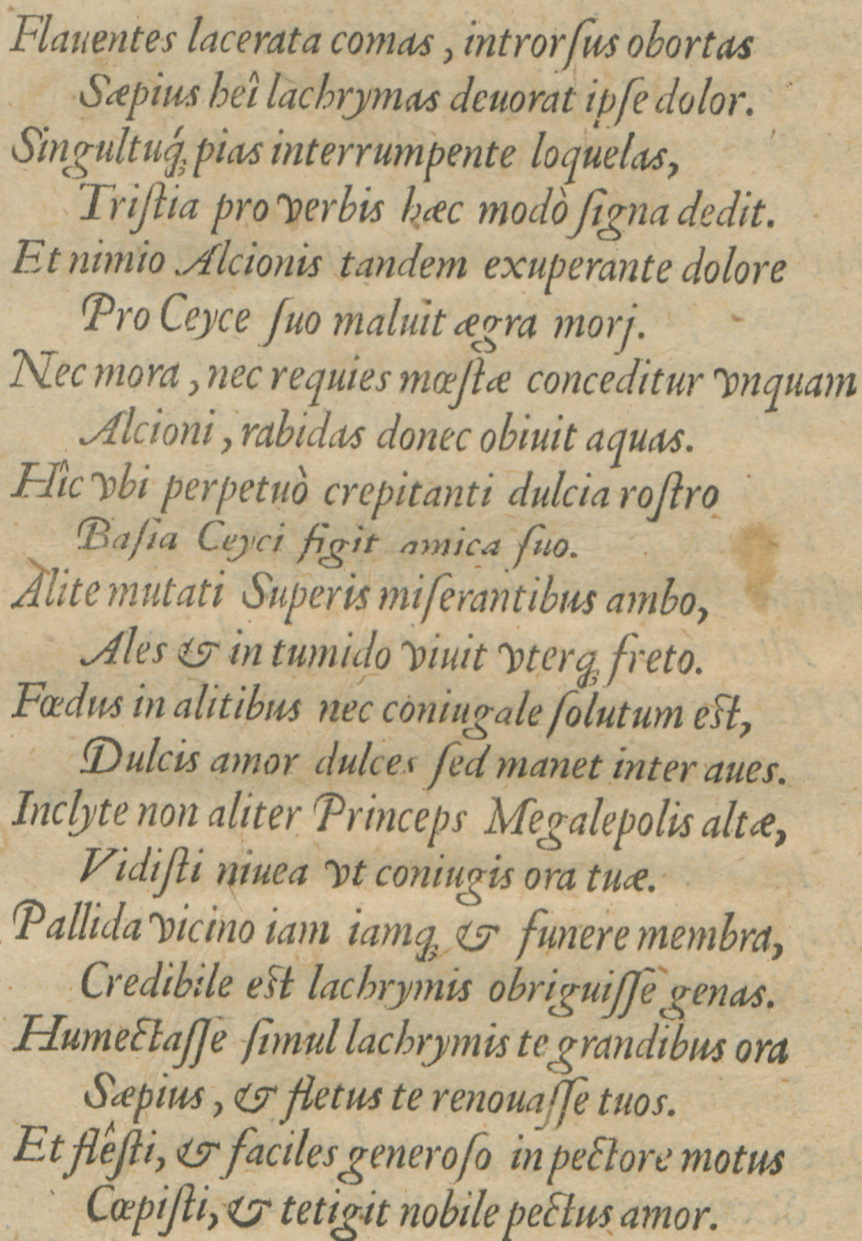 Flauentes lacerata comas, introrſus obortas
Sæpius heî lachrymas deuorat ipſe dolor.
Singultuq́ꝫ pias interrumpente loquelas,
Triſtia pro verbis hæc modò ſigna dedit.
Et nimio Alcionis tandem exuperante dolore
Pro Ceyce ſuo maluit ægra morj.
Nec mora, nec requies mœſtæ conceditur vnquam
Alcioni, rabidas donec obiuit aquas.
Hîc vbi perpetuò crepitanti dulcia roſtro
Baſia Ceyci figit amica ſuo.
Alite mutati Superis miſerantibus ambo,
Ales & in tumido viuit vterqꝫ freto.
Fœdus in alitibus nec coniugale ſolutum eſt,
Dulcis amor dulces ſed manet inter aues.
Inclyte non aliter Princeps Megalepolis altæ,
Vidiſti niuea vt coniugis ora tuæ.
Pallida vicino iam iamqꝫ & funere membra,
Credibile eſt lachrymis obriguiſſe genas.
Humectaſſe ſimul lachrymis te grandibus ora
Sæpius, & fletus te renouaſſe tuos.
Et flêſti, & faciles generoſo in pectore motus
Cœpiſti, & tetigit nobile pectus amor.